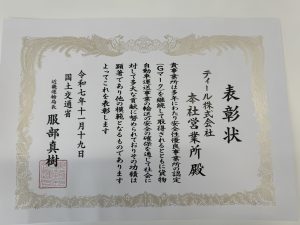 表彰状
ティール株式会社
本社営業所 殿
貴事業所は多年にわたり安全性優良事業所の認定
(Gマーク)を継続して取得されるとともに貨物
自動車運送事業の輸送の安全の確保を通して社会に
対して多大な貢献に努められておりその功績は
顕著であり他の模範となるものであります
よってこれを表彰します
令和七年十一月十九日
国土交通省
近畿運輸局長
服部真樹